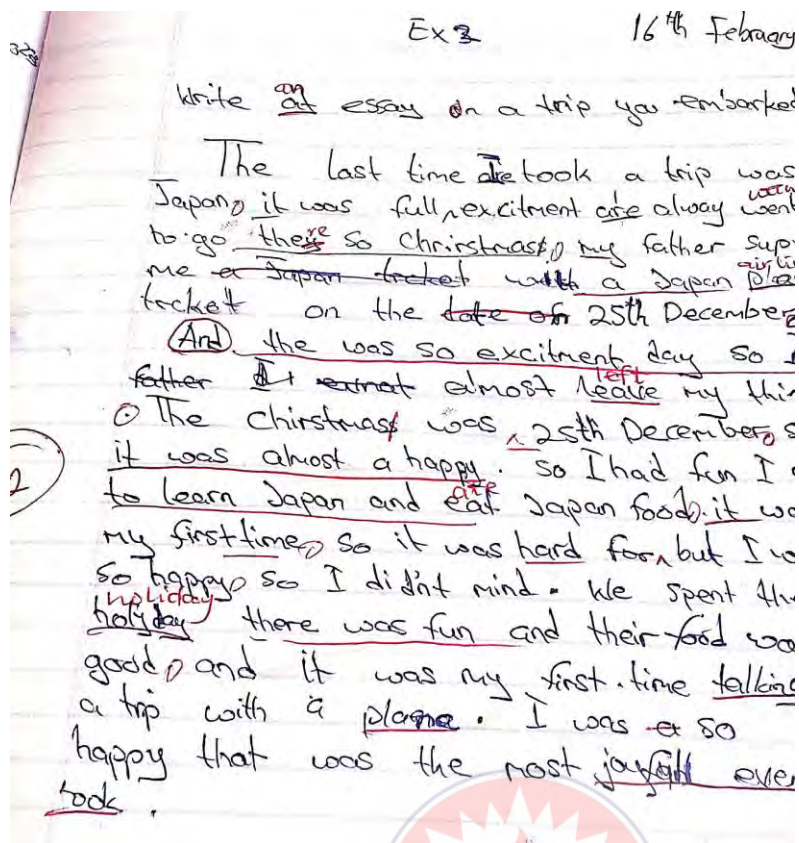 Ex 3 16th February
Write an at essay on a trip you embarked
The last time I took a trip was
Japan, it was full excitment are alway went
to go there so Chrirstmas, my father sup
me a Japan trcket with a Japan airlin
trcket on the date of 25th December
And the was so excitment day so I
father I almost left leave my thin
The Chirstmas was 25th December, s
it was almost a happy. So I had fun I
to learn Japan and ate eat Japan food. it wa
my first time, so it was hard for, but I w
so happy, so I did'nt mind. We spent the
holiday
holyday there was fun and their food was
good, and it was my first time talking
a trip with a plane. I was a so
happy that was the most joyfull ever
took.
2